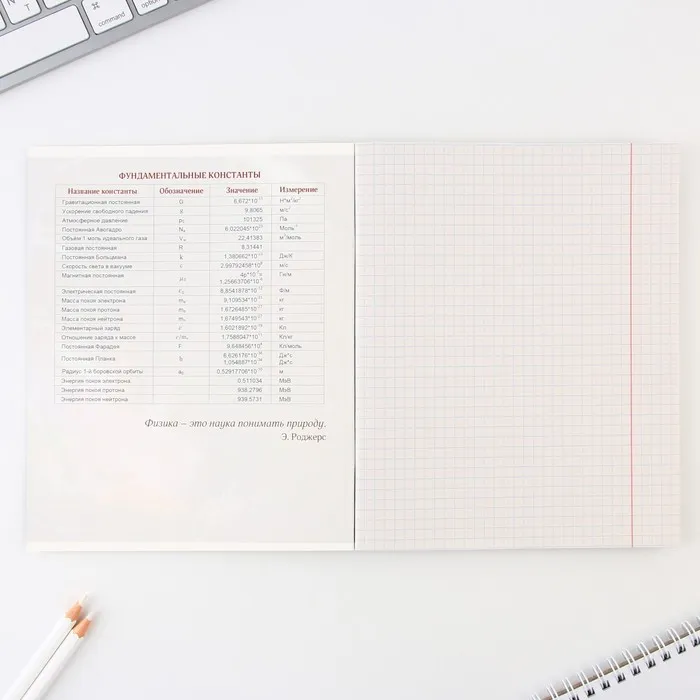 N
T
⌘
command
option
ФУНДАМЕНТАЛЬНЫЕ КОНСТАНТЫ
Название константы Обозначение Значение Измерение
Гравитационная постоянная G 6,672*10⁻¹¹ Н*м²/кг²
Ускорение свободного падения g 9,8065 м/с²
Атмосферное давление p₀ 101325 Па
Постоянная Авогадро Nₐ 6,022045*10²³ Моль⁻¹
Объём 1 моль идеального газа 22,41383 м³/моль
Газовая постоянная R 8,31441
Постоянная Больцмана k 1,380662*10⁻²³
Скорость света в вакууме c 2,99792458*10⁸ м/с
Магнитная постоянная μ₀ 4p*10⁻⁷ Гн/м
1,25663706*10⁻⁶
Электрическая постоянная 8,8541878*10⁻¹² Ф/м
Масса покоя электрона mₑ 9,109534*10⁻³¹ кг
Масса покоя протона mₚ 1,6726485*10⁻²⁷ кг
Масса покоя нейтрона mₙ 1,6749543*10⁻²⁷ кг
Элементарный заряд 1,6021892*10⁻¹⁹ Кл
Отношение заряда к массе 1,7588047*10¹¹ Кл/кг
Постоянная Фарадея F 9,648456*10⁴ Кл/моль
Постоянная Планка 6,626176*10⁻³⁴ Дж*с
1,054887*10⁻³⁴ Дж*с
Радиус 1-й боровской орбиты a₀ 0,52917706*10⁻¹⁰ м
Энергия покоя электрона 0.511034 МэВ
Энергия покоя протона 938.2796 МэВ
Энергия покоя нейтрона 939.5731 МэВ
Физика – это наука понимать природу.
Э. Роджерс